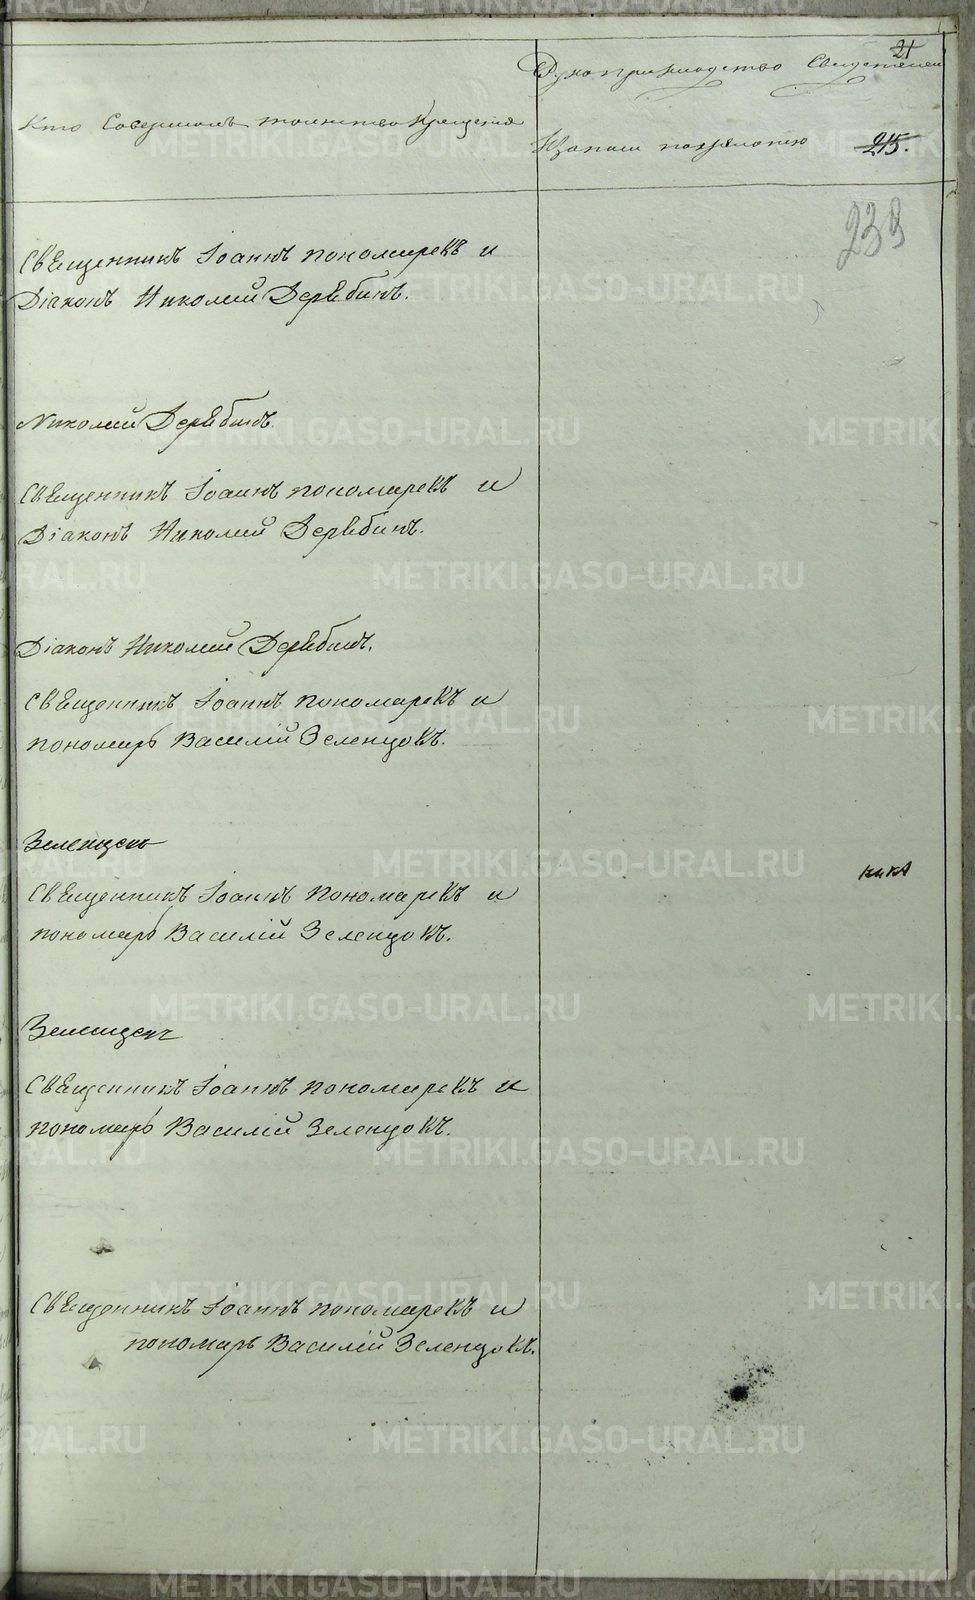 21
Рукоприкладство Свидетелей
Кто Совершалъ таинство Крещенiя
Записи по желанiю
215.
239
Священникъ Іоаннъ пономаревъ и
Діаконъ Николай Дерябинъ.
Николай Дерябинъ.
Священникъ Іоаннъ пономаревъ и
Діаконъ Николай Дерябинъ.
Діаконъ Николай Дерябинъ.
Священникъ Іоаннъ пономаревъ и
пономарь Василій Зеленцовъ.
Зеленцовъ
Священникъ Іоаннъ Пономаревъ и
пономарь Василій Зеленцовъ.
Зеленцовъ
Священникъ Іоаннъ пономаревъ и
пономарь Василій Зеленцовъ.
Священникъ Іоаннъ пономаревъ и
пономарь Василій Зеленцовъ.
METRIKI.GASO-URAL.RU